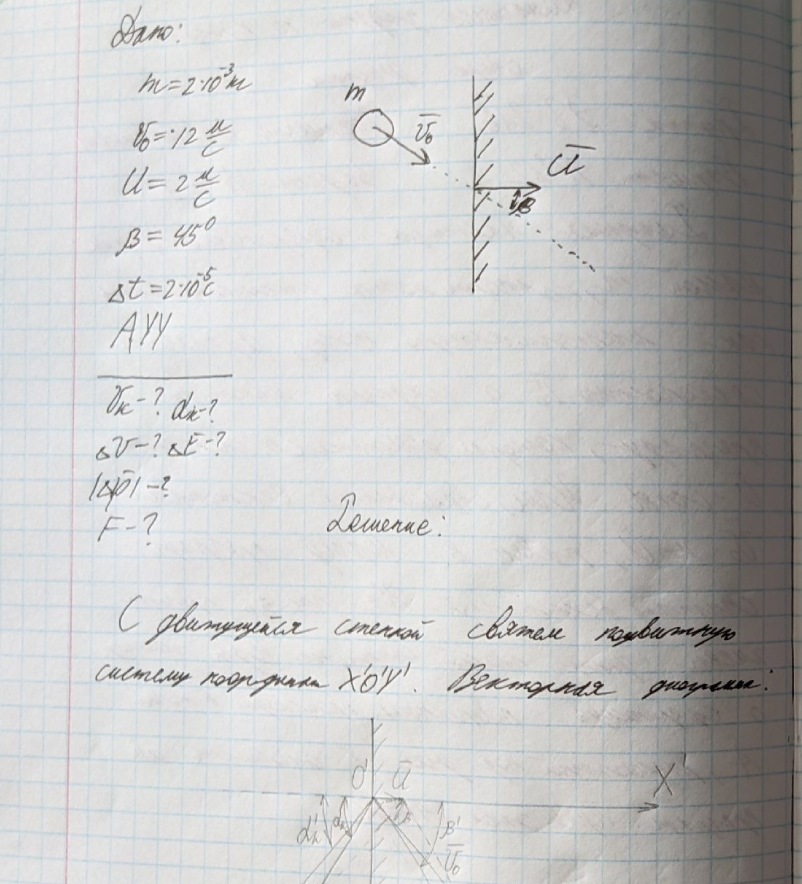 Дано:
m = 2·10⁻³ кг
m
V̄₀
V₀ = 12 м/с
Ū
U = 2 м/с
β
β = 45°
Δt = 2·10⁻⁵ с
АУУ
Vк - ? αк - ?
ΔV - ? ΔE - ?
|Δp̄| - ?
F - ?
Решение:
С движущейся стенкой свяжем подвижную
систему координат X'O'Y'. Векторная диаграмма:
O' Ū X'
α'к αк β β'
V̄₀